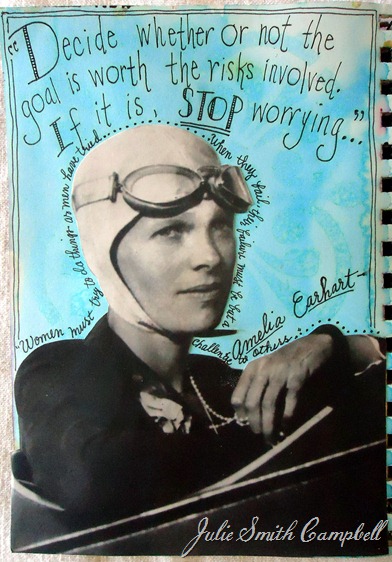 "Decide whether or not the
goal is worth the risks involved.
If it is, STOP worrying..."
~Women must try to do things as men have tried...
When they fail, their failure must be but a
challenge to others...
Amelia Earhart~
Julie Smith Campbell